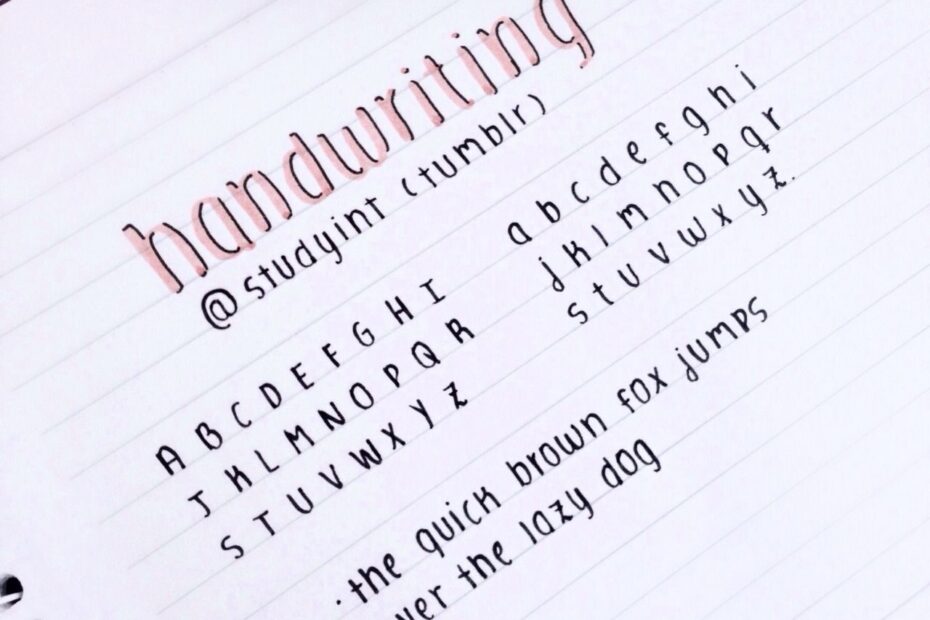 handwriting
@studyint (tumblr)
A B C D E F G H I
J K L M N O P Q R
S T U V W X Y Z
a b c d e f g h i
j k l m n o p q r
s t u v w x y z.
· the quick brown fox jumps
the lazy dog